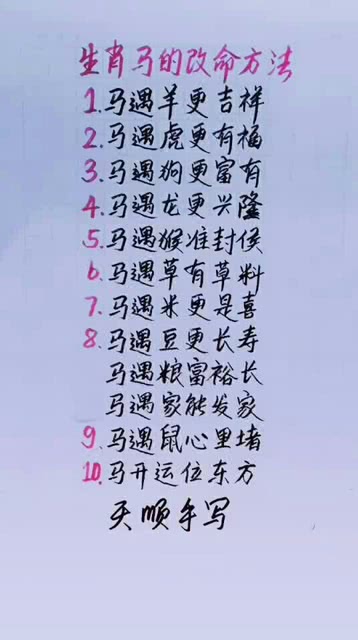 生肖马的改命方法
1.马遇羊更吉祥
2.马遇虎更有福
3.马遇狗更富有
4.马遇龙更兴隆
5.马遇猴准封侯
6.马遇草有草料
7.马遇米更是喜
8.马遇豆更长寿
马遇粮富裕长
马遇家能发家
9.马遇鼠心里堵
10.马开运位东方
天顺手写